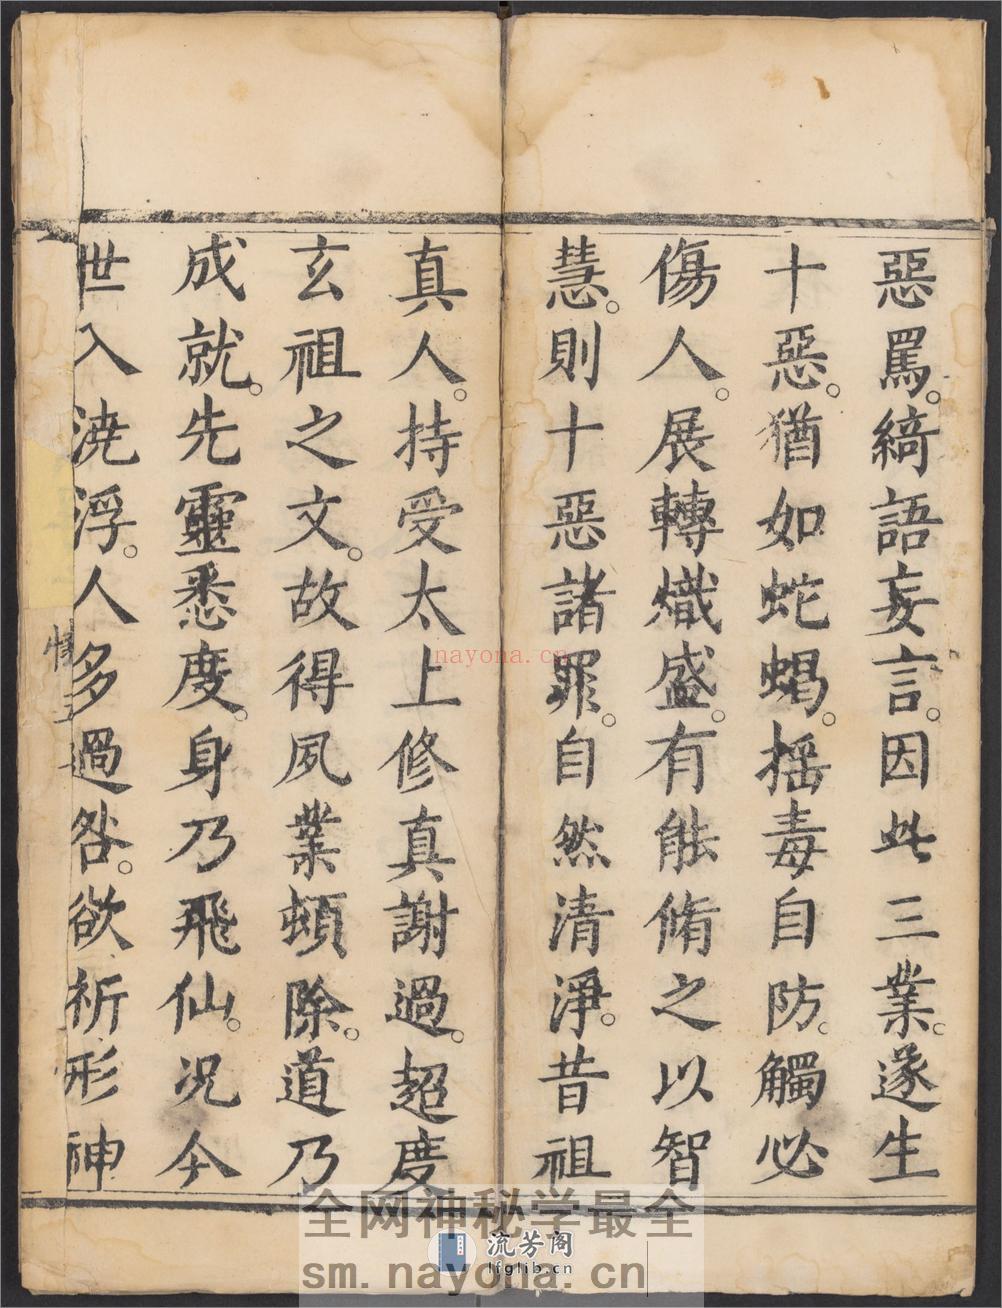 惡罵。綺語妄言。因此三業。遂生
十惡。猶如蛇蝎。摇毒自防。觸必
傷人。展轉熾盛。有能脩之以智
慧。則十惡諸罪。自然清淨。昔祖
真人。持受太上修真謝過。超度
玄祖之文。故得夙業頓除。道乃
成就。先靈悉度。身乃飛仙。况今
世入澆浮。人多過咎。欲祈形神
nayona.cn
全网神秘学最全
流芳阁
lfglib.cn
sm.nayona.cn